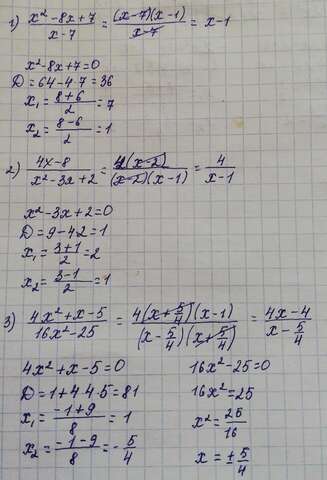 1) (x² - 8x + 7)/(x - 7) = ((x-7)(x-1))/(x-7) = x - 1
x² - 8x + 7 = 0
D = 64 - 4·7 = 36
x₁ = (8+6)/2 = 7
x₂ = (8-6)/2 = 1
2) (4x - 8)/(x² - 3x + 2) = (4(x-2))/((x-2)(x-1)) = 4/(x-1)
x² - 3x + 2 = 0
D = 9 - 4·2 = 1
x₁ = (3+1)/2 = 2
x₂ = (3-1)/2 = 1
3) (4x² + x - 5)/(16x² - 25) = (4(x + 5/4)(x-1))/((x - 5/4)(x + 5/4)) = (4x - 4)/(x - 5/4)
4x² + x - 5 = 0
D = 1 + 4·4·5 = 81
x₁ = (-1+9)/8 = 1
x₂ = (-1-9)/8 = -5/4
16x² - 25 = 0
16x² = 25
x² = 25/16
x = ± 5/4